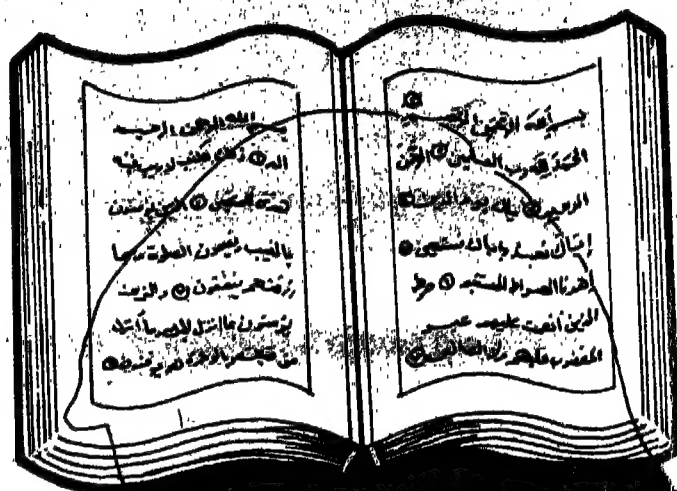 بسم الله الرحمن الرحيم
الحمد لله رب العلمين الرحمن
الرحيم ملك يوم الدين
إياك نعبد وإياك نستعين
إهدنا الصراط المستقيم صرط
الذين أنعمت عليهم غير
المغضوب عليهم ولا الضالين
بسم الله الرحمن الرحيم
الم ذلك الكتب لا ريب فيه
هدى للمتقين الذين يؤمنون
بالغيب ويقيمون الصلوة ومما
رزقنهم ينفقون والذين
يؤمنون بما انزل اليك وما أنزل
من قبلك وبالاخرة هم يوقنون